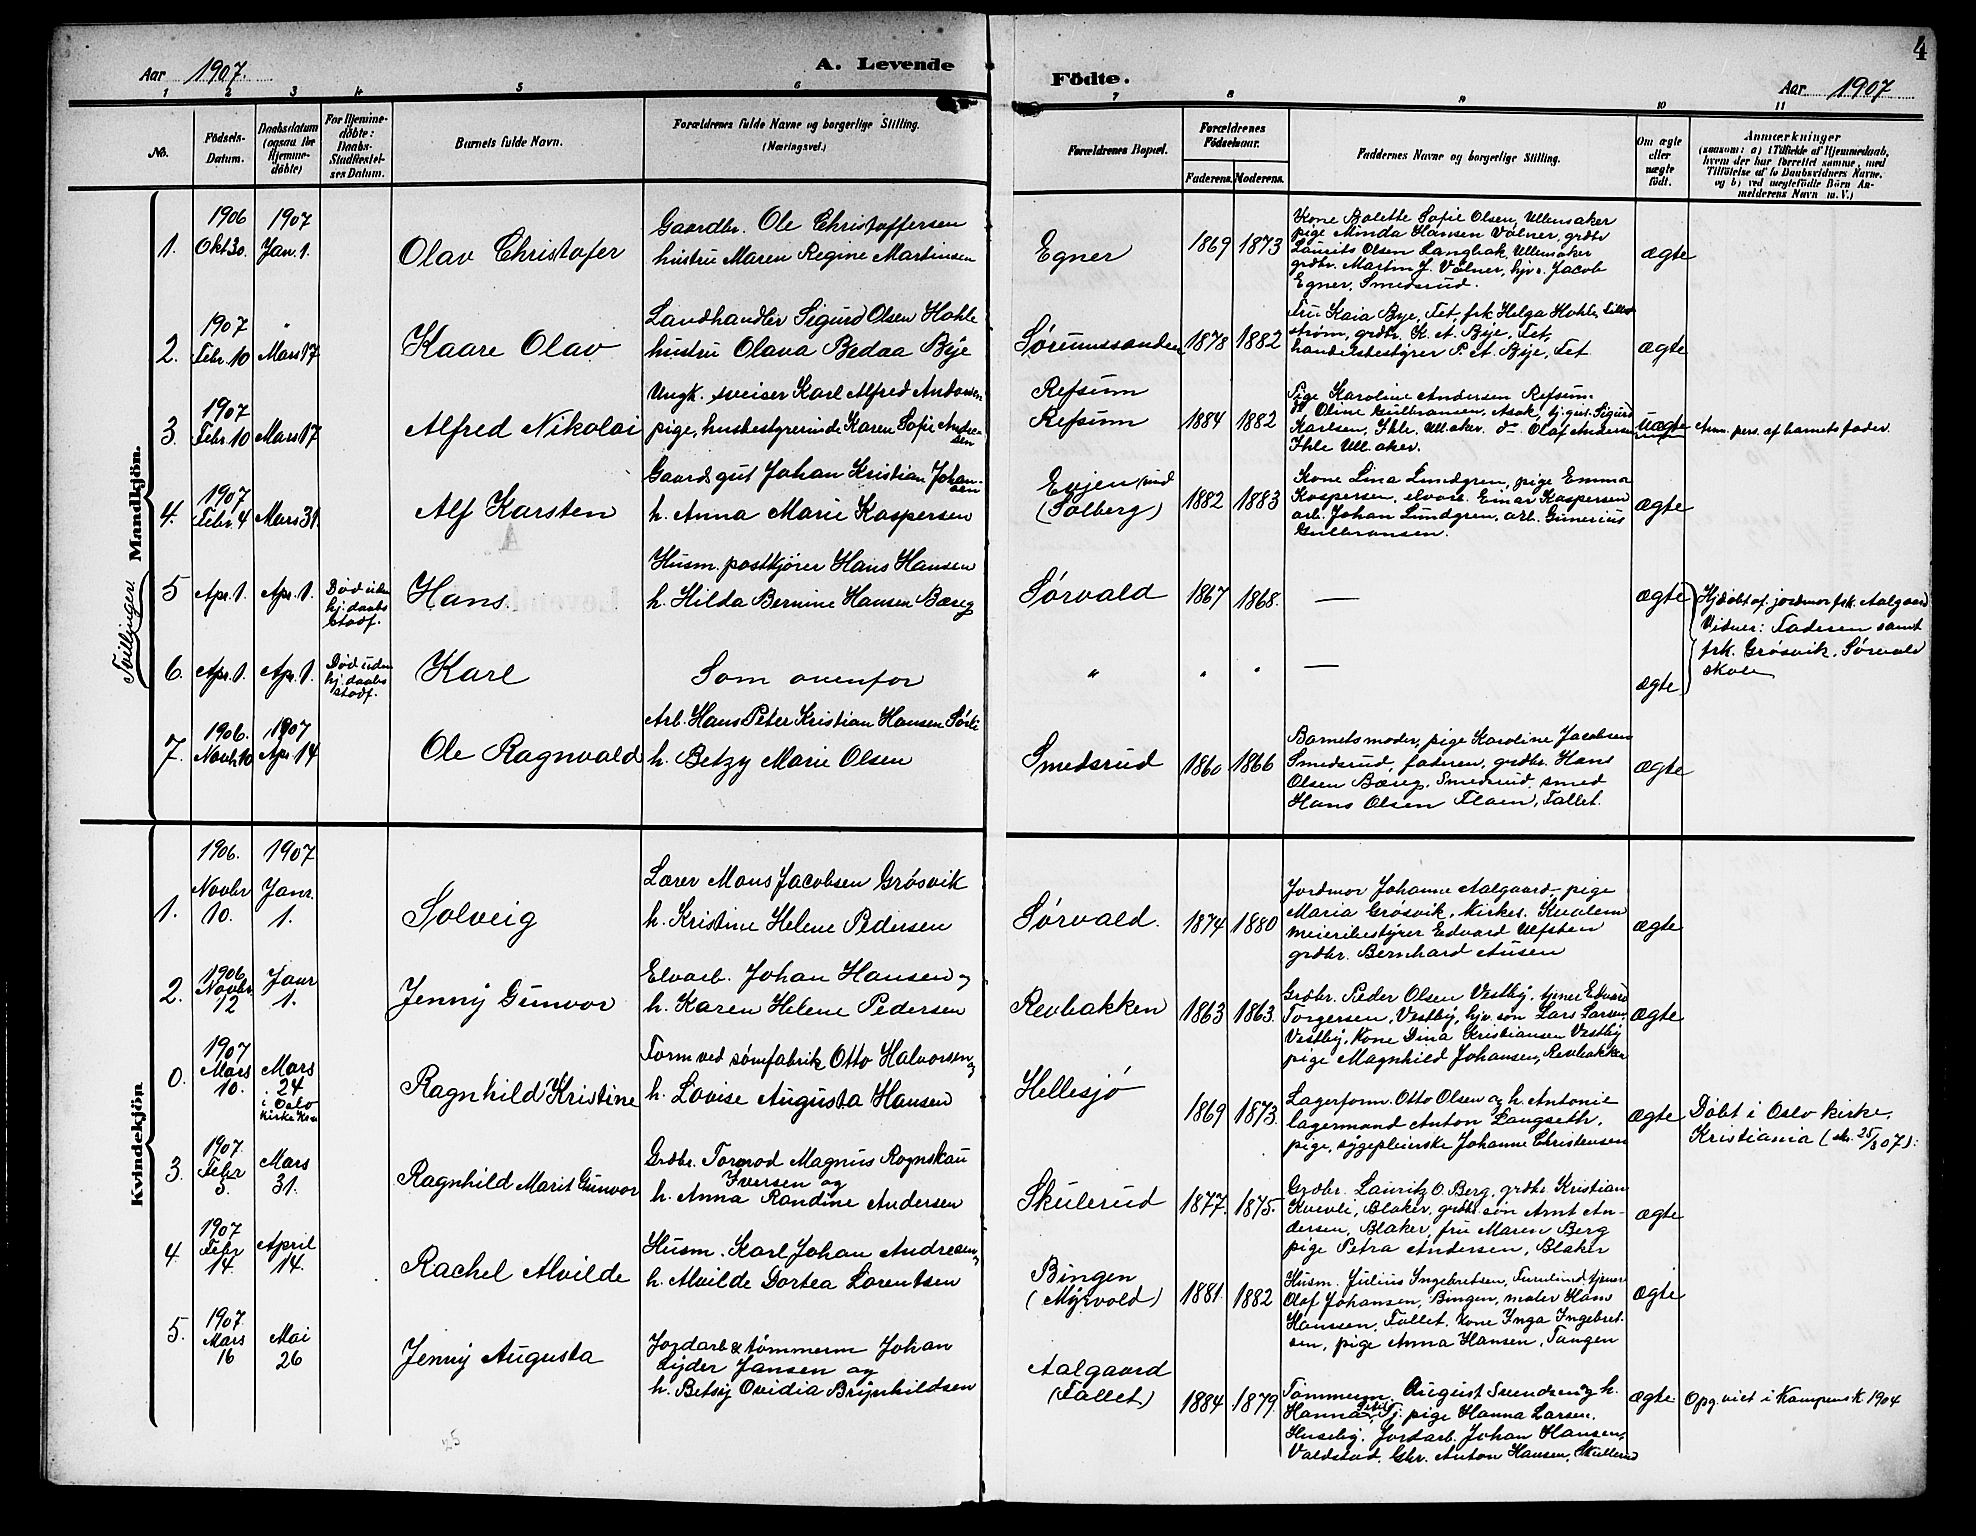 Aar 1907.
A. Levende
Födte.
Aar 1907
4
1 2 3 4 5 6 7 8 9 10 11
No.
Födsels-
Datum.
Daabsdatum
(ogsaa for
Hjemme-
döbte)
For Hjemme-
döbte:
Daabs-
Stadfæstel-
ses Datum.
Barnets fulde Navn.
Forældrenes fulde Navne og borgerlige Stilling.
(Næringsvei.)
Forældrenes Bopæl.
Forældrenes
Födselsaar.
Faderens. Moderens.
Faddernes Navne og borgerlige Stilling.
Om ægte
eller
uægte
födt.
Anmærkninger
(saasom: a) i Tilfælde af Hjemmedaab,
hvem der har forrettet samme, med
Tilföielse af to Daabsvidners Navne.
og b) ved uægtefödte Börn An-
melderens Navn m. V.)
Mandkjön.
1.
1906
Okt 30.
1907
Jan. 1.
Olav Christofer
Gaardbr. Ole Christoffersen
hustru Maren Regine Martinsen
Egner
1869 1873
Kone Bolette Sofie Olsen, Ullensaker
pige Minda Hansen Valner, grdbr
Laurits Olsen Langbak, Ullensaker
grdbr. Martin J. Valner, hjv. s. Jacob
Egner, Smedsrud.
ægte
2.
1907
Febr. 10
"
Mars 17
Kaare Olav
Landhandler Sigurd Olsen Hohle
hustru Olava Bedaa Bye
Sørumssanden
1878 1882
Fru Kaia Bye, Fet, frk Helga Hohle, Lille-
strøm, grdbr. K. A. Bye, Fet,
handelsbestyrer P. A. Bye, Fet
ægte
3.
1907
Febr. 10
Mars 17
Alfred Nikolai
Ungk. sveiser Karl Alfred Andersen
pige, husbestyrerinde Karen Sofie Andre-
sen
Refsum
Refsum
1884 1882
Pige Karoline Andersen Refsum.
do Oline Gulbransen, Asak, tj.gut. Sigurd
Karlsen, Ihle, Ull.aker. do Olaf Andersen
Ihle Ull.aker.
uægte
Anm. pers. af barnets fader.
4.
1907
Febr. 4
Mars 31.
Alf Karsten
Gaardsgut Johan Kristian Johan-
sen
h. Anna Marie Kaspersen
Evjen (und
(Solberg)
1882 1883
Kone Lina Lundgren, pige Emma
Kaspersen, elvarb. Einar Kaspersen
arb. Johan Lundgren, arb. Gunerius
Gulbransen.
ægte
Tvillinger.
5
Apr. 1.
Apr. 1.
Død uden
hj. daabs
stadf.
Hans
Husm. postkjører Hans Hansen
h. Hilda Bernine Hansen Bæreg
Sørvald
1867 1868.
—
ægte
Hjdøbt af jordmor frk. Aalgaard
Vidner: Faderen samt
frk. Grøsvik, Sørvald
skole
6.
Apr. 1.
Apr. 1.
Død uden
hj. daabs
stadf.
Karl
Som ovenfor
" " "
—
ægte
7.
1906.
Novb. 10
1907
Apr. 14
Ole Ragnvald
Arb. Hans Peter Kristian Hansen Sørli
h. Betzy Marie Olsen
Smedsrud
1860 1866
Barnets moder, pige Karoline Jacobsen
Smedsrud, faderen, grdbr. Hans
Olsen Bæreg, Smedsrud, smed
Hans Olsen Flaen, Fallet.
ægte
Kvindekjön
1.
1906.
Novbr
10.
1907
Janr.
1.
Solveig
Lærer Mons Jacobsen Grøsvik
h. Kristine Helene Pedersen
Sørvald.
1874 1880
Jordmor Johanne Aalgaard, pige
Maria Grøsvik, Kirkes. Kvalem
meieribestyrer Edvard Ulfsten
grdbr. Bernhard Ausen
ægte
2.
1906
Novbr
12
Janr
1.
Jenny Gunvor
Elvarb. Johan Hansen og
h. Karen Helene Pedersen
Revbakken
1863 1863.
Grdbr. Peder Olsen Vestby, tjener Edvard
Torgersen, Vestby, hjv. søn Lars Larsen
Vestby, Kone Dina Kristiansen Vestby
pige Magnhild Johansen, Revbakken
ægte
0.
1907
Mars
10.
Mars
24
i Oslo
kirke Kra
Ragnhild Kristine
Form. ved sømfabrik Otto Halvorsen og
h. Lovise Augusta Hansen
Hellesjø
1869 1873.
Lagerform. Otto Olsen og h. Antonie
lagermand Anton Langseth,
pige, sygepleierske Johanne Christensen
ægte
Døbt i Oslo kirke,
Kristiania (
3
1907.
Febr
3.
Mars
31.
Ragnhild Marit Gunvor
Grdbr. Tormod Magnus Rognskau
Iversen og
h. Anna Randine Andersen
Skulerud
1877. 1875.
Grdbr. Lauritz O. Berg, grdbr. Kristian
Kvevli, Blaker, grdbr søn Arnt An-
dersen, Blaker, fru Maren Berg
pige Petra Andersen, Blaker
ægte
4
1907
Febr
14.
April
14.
Rachel Alvilde
Husm. Karl Johan Andresen og
h. Alvilde Dortea Lorentsen
Bingen
(Myrvold)
1881. 1882
Husm. Julius Ingebretsen, Furulund, tjener
Olaf Johansen, Bingen, maler Hans
Hanssen, Fallet, Kone Inga Ingebret-
sen, pige Anna Hansen, Tangen
ægte
5.
1907.
Mars
16
Mai
26
Jenny Augusta
Jordarb & tømmerm Johan
Lyder Jansen og
h. Betsy Ovidia Brynhildsen
Aalgaard
(Fallet)
1884 1879.
Tømmerm. August Svendsen og h.
Hanna, pige Hanna Larsen,
Huseby, Jordarb. Johan Hansen,
Valdstad, Gbr. Anton Hansen, Skullerud
ægte
Opg. viet i Kampens k 1904